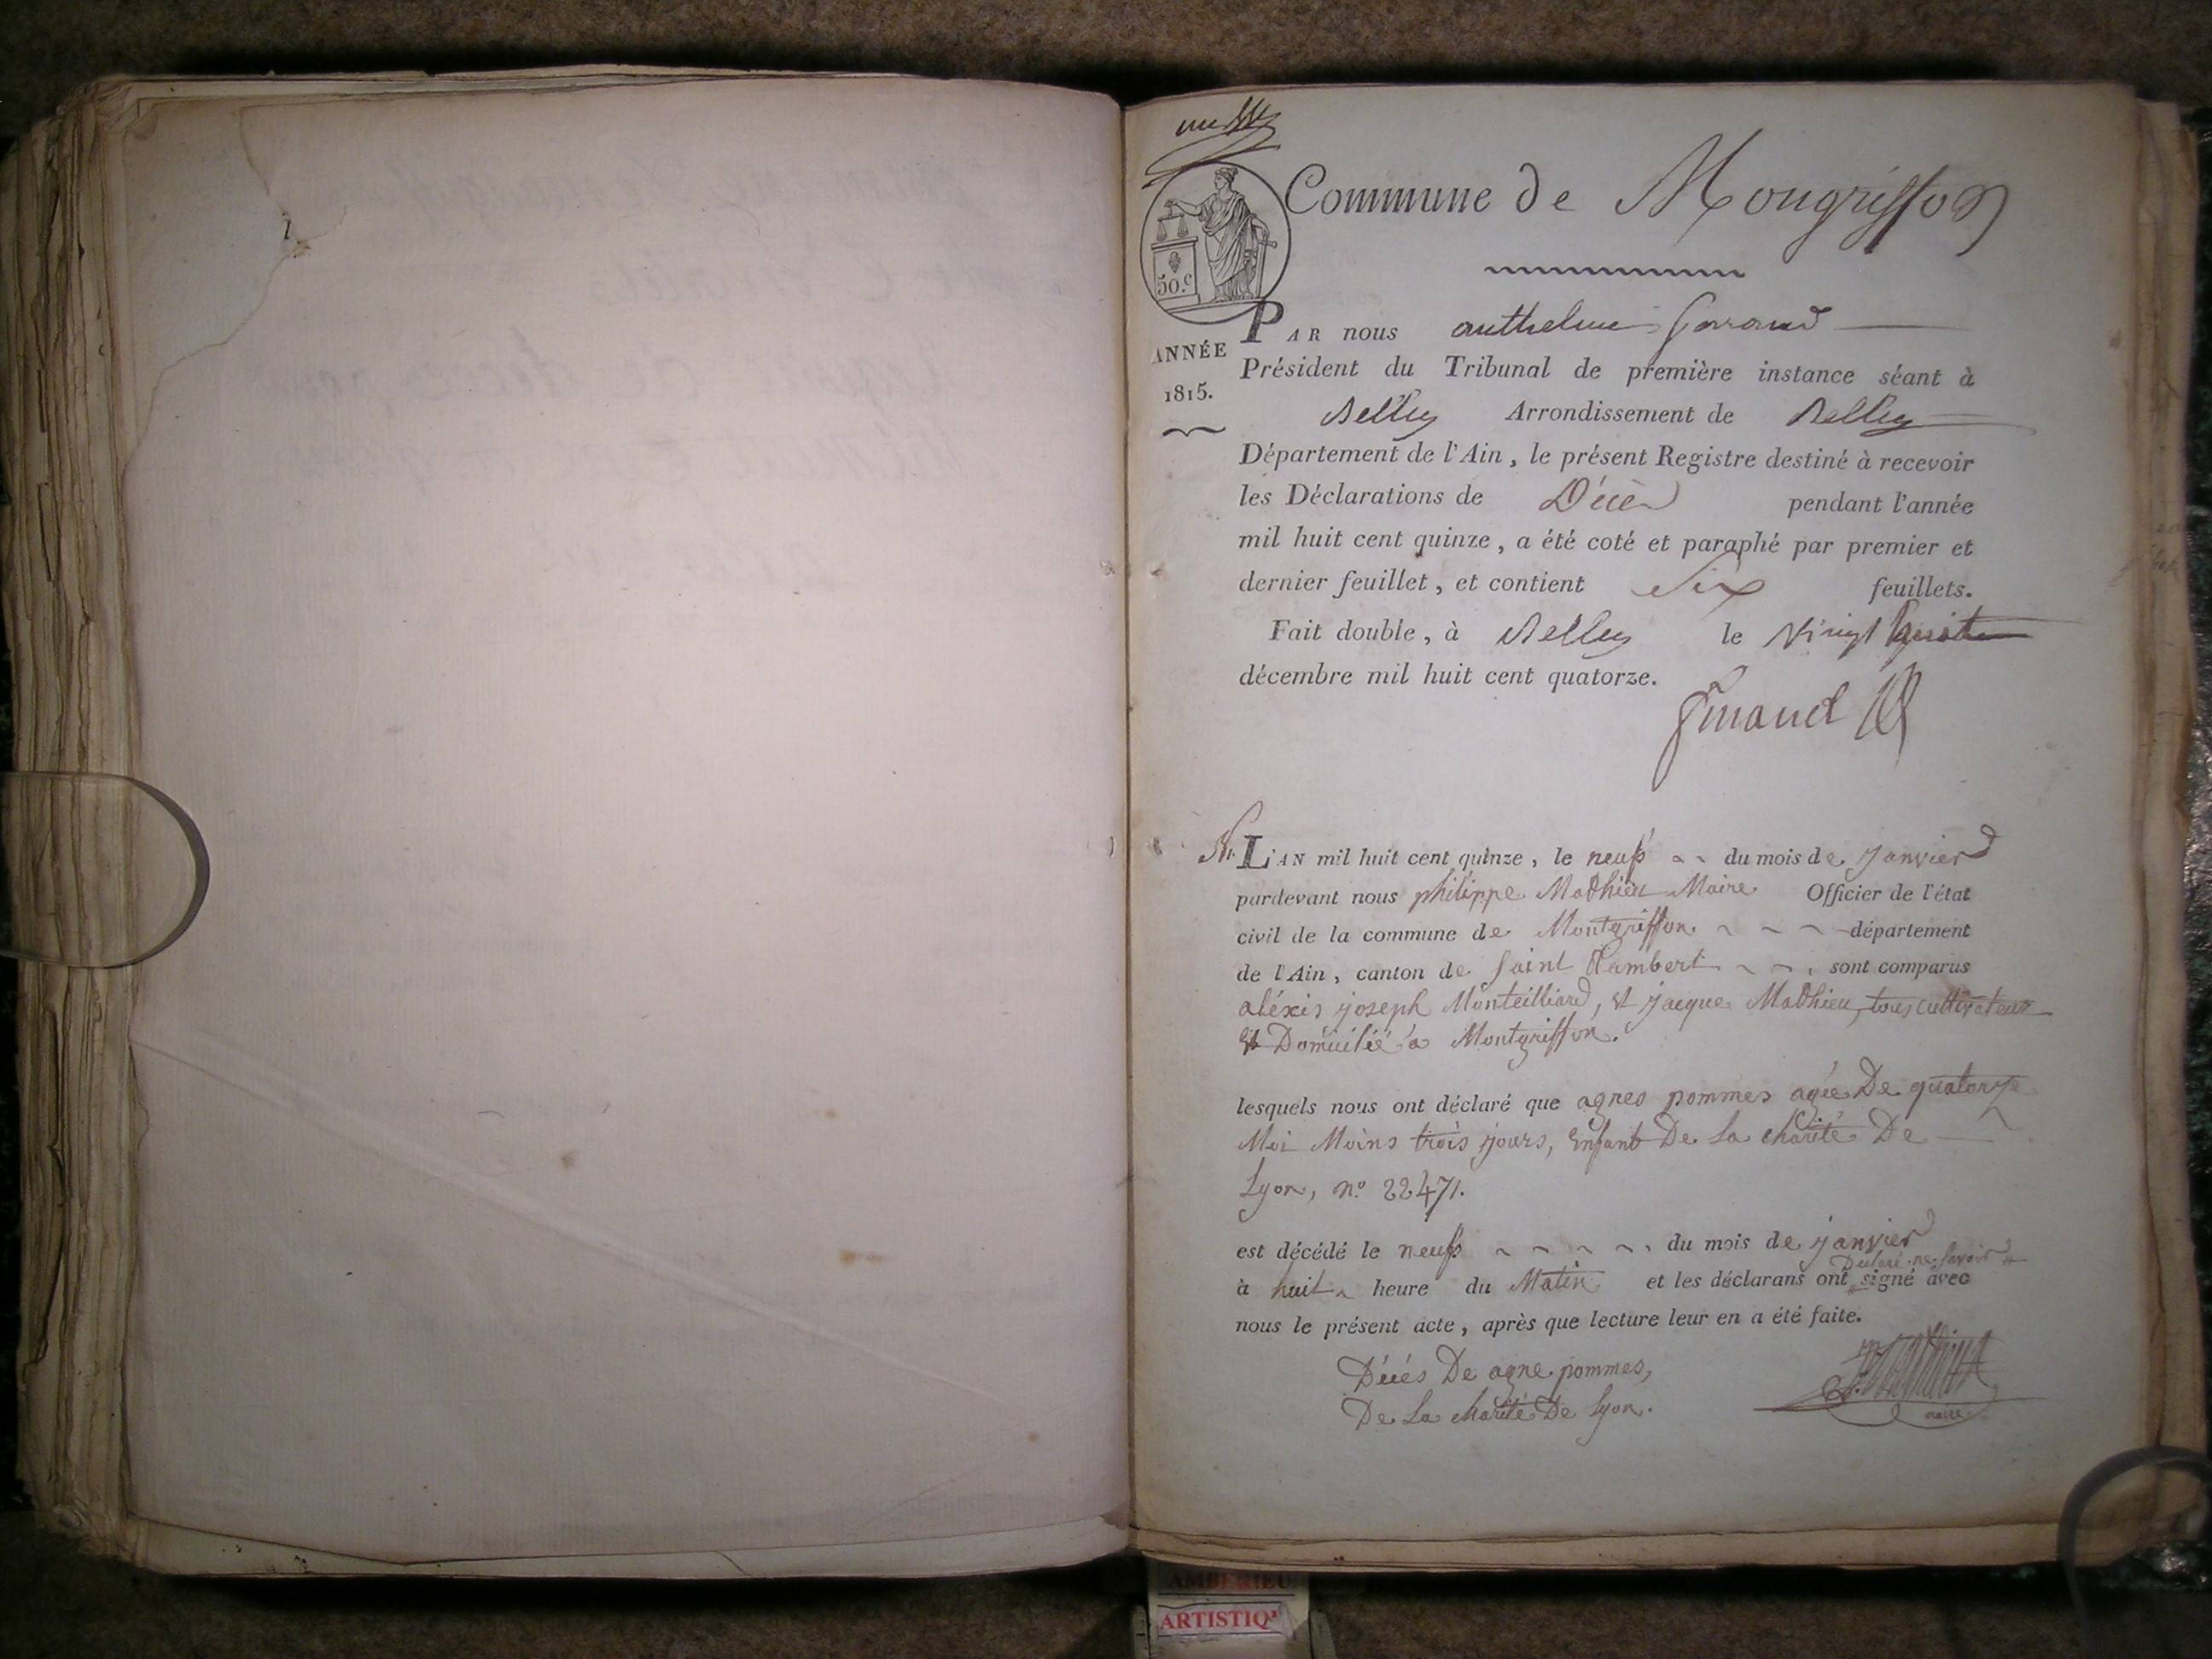 Commune de Mongriffon
50.c
PAR nous anthelme
ANNÉE
1815.
Président du Tribunal de première instance séant à
Belley Arrondissement de Belley
Département de l'Ain, le présent Registre destiné à recevoir
les Déclarations de Décès pendant l'année
mil huit cent quinze, a été coté et paraphé par premier et
dernier feuillet, et contient six feuillets.
Fait double, à Belley le vingt
décembre mil huit cent quatorze.
L'AN mil huit cent quinze, le neuf du mois de janvier
pardevant nous philippe Mathieu Maire Officier de l'état
civil de la commune de Montgriffon département
de l'Ain, canton de saint Rambert sont comparus
aléxis joseph Monteilliard, et jacque Mathieu, tous cultivateur
et Domicilié a Montgriffon.
lesquels nous ont déclaré que agnes pommes agée De quatorze
Moi Moins trois jours, enfant De La charité De
Lyon, n.º 22471.
est décédé le neuf du mois de janvier
Déclaré ne savoir
à huit heure du Matin et les déclarans ont signé avec
nous le présent acte, après que lecture leur en a été faite.
Décés De agne pommes,
De La charité De Lyon.
maire
AMBERIEU
ARTISTIQ